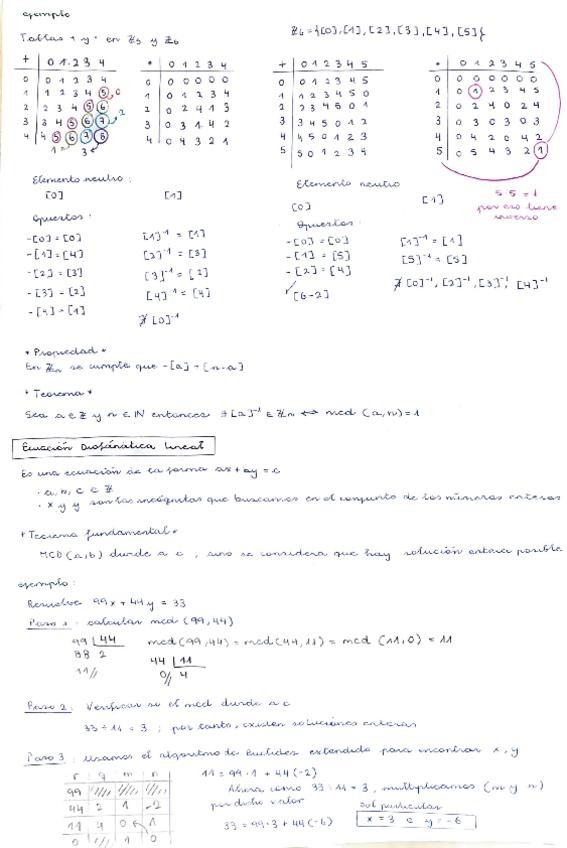 ejemplo
Tablas + y · en Z5 y Z6
Z6 = {[0], [1], [2], [3], [4], [5]}
+ | 0 1 2 3 4
0 | 0 1 2 3 4
1 | 1 2 3 4 5 0
2 | 2 3 4 5 6
3 | 3 4 5 6 7 2
4 | 4 5 6 7 8
1 3
· | 0 1 2 3 4
0 | 0 0 0 0 0
1 | 0 1 2 3 4
2 | 0 2 4 1 3
3 | 0 3 1 4 2
4 | 0 4 3 2 1
+ | 0 1 2 3 4 5
0 | 0 1 2 3 4 5
1 | 1 2 3 4 5 0
2 | 2 3 4 5 0 1
3 | 3 4 5 0 1 2
4 | 4 5 0 1 2 3
5 | 5 0 1 2 3 4
· | 0 1 2 3 4 5
0 | 0 0 0 0 0 0
1 | 0 1 2 3 4 5
2 | 0 2 4 0 2 4
3 | 0 3 0 3 0 3
4 | 0 4 2 0 4 2
5 | 0 5 4 3 2 1
Elemento neutro:
[0] [1]
Opuestos:
-[0] = [0] [1]⁻¹ = [1]
-[1] = [4] [2]⁻¹ = [3]
-[2] = [3] [3]⁻¹ = [2]
-[3] = [2] [4]⁻¹ = [4]
-[4] = [1] ∄ [0]⁻¹
Elemento neutro
[0] [1]
5·5 = 1
por eso tiene
inverso
Opuestos:
-[0] = [0] [1]⁻¹ = [1]
-[1] = [5] [5]⁻¹ = [5]
-[2] = [4] ∄ [0]⁻¹, [2]⁻¹, [3]⁻¹, [4]⁻¹
[6-2]
* Propiedad *
En Zn se cumple que -[a] = [n-a]
* Teorema *
Sea a ∈ Z y n ∈ IN entonces ∃ [a]⁻¹ ∈ Zn ↔ mcd (a,n) = 1
Ecuación Diofánatica lineal
Es una ecuación de la forma ax + by = c
· a, b, c ∈ Z
· x y y son las incógnitas que buscamos en el conjunto de los números enteros
* Teorema fundamental *
MCD (a,b) divide a c, sino se considera que hay solución entera posible
ejemplo:
Resuelve 99x + 44y = 33
Paso 1: calcular mcd (99,44)
99 | 44
88 2
11//
mcd (99,44) = mcd (44,11) = mcd (11,0) = 11
44 | 11
0// 4
Paso 2: Verificar si el mcd divide a c
33 ÷ 11 = 3; por tanto, existen soluciones enteras
Paso 3: usamos el algoritmo de Euclides extendido para encontrar x, y
r | q | m | n
99 | //// | //// | ////
44 | 2 | 1 | -2
11 | 4 | 0 | 1
0 | //// | 1 | 0
11 = 99·1 + 44(-2)
Ahora como 33 ÷ 11 = 3, multiplicamos (m y n)
por dicho valor
33 = 99·3 + 44(-6)
sol particular
x = 3 e y = -6